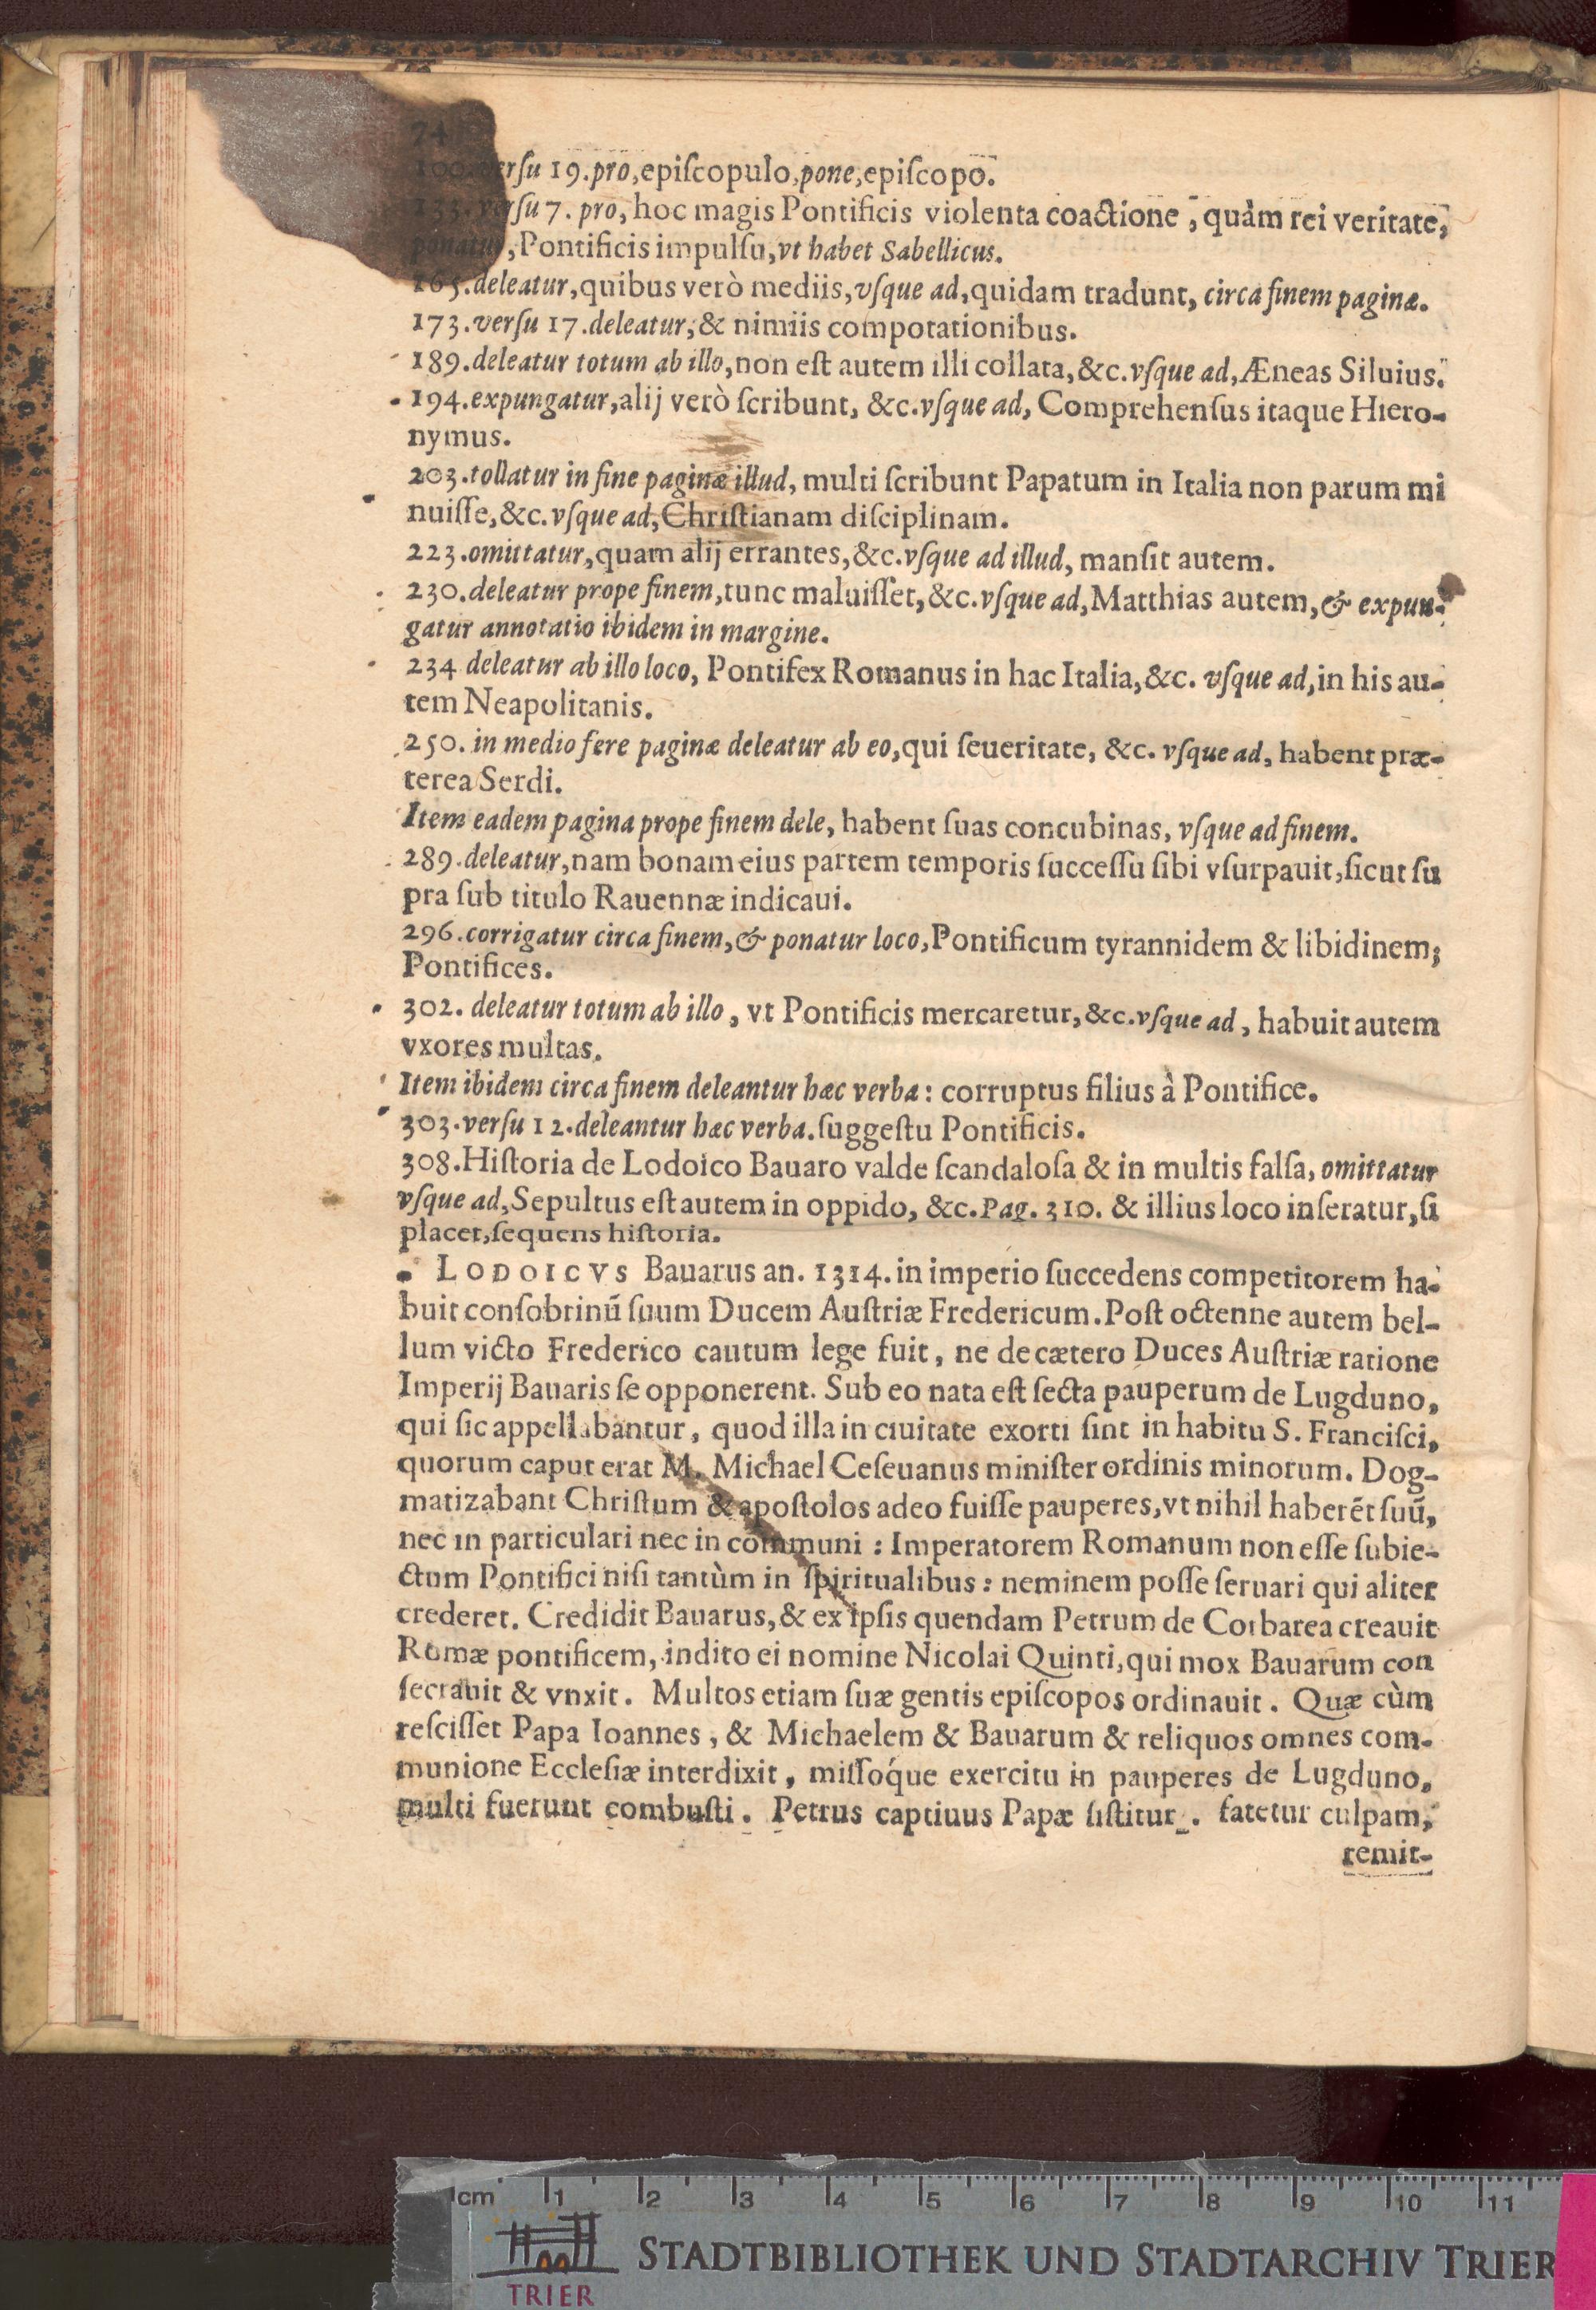 74
100. versu 19. pro, episcopulo, pone, episcopo.
133. versu 7. pro, hoc magis Pontificis violenta coactione, quàm rei veritate,
ponatur, Pontificis impulsu, vt habet Sabellicus.
165. deleatur, quibus verò mediis, vsque ad, quidam tradunt, circa finem paginæ.
173. versu 17. deleatur, & nimiis compotationibus.
189. deleatur totum ab illo, non est autem illi collata, &c. vsque ad, Æneas Siluius.
194. expungatur, alij verò scribunt, &c. vsque ad, Comprehensus itaque Hiero-
nymus.
203. tollatur in fine paginæ illud, multi scribunt Papatum in Italia non parum mi
nuisse, &c. vsque ad, Christianam disciplinam.
223. omittatur, quam alij errantes, &c. vsque ad illud, mansit autem.
230. deleatur prope finem, tunc maluisset, &c. vsque ad, Matthias autem, & expun-
gatur annotatio ibidem in margine.
234 deleatur ab illo loco, Pontifex Romanus in hac Italia, &c. vsque ad, in his au-
tem Neapolitanis.
250. in medio fere paginæ deleatur ab eo, qui seueritate, &c. vsque ad, habent præ-
terea Serdi.
Item eadem pagina prope finem dele, habent suas concubinas, vsque ad finem.
289. deleatur, nam bonam eius partem temporis successu sibi vsurpauit, sicut su
pra sub titulo Rauennæ indicaui.
296. corrigatur circa finem, & ponatur loco, Pontificum tyrannidem & libidinem;
Pontifices.
302. deleatur totum ab illo, vt Pontificis mercaretur, &c. vsque ad, habuit autem
vxores multas.
Item ibidem circa finem deleantur hæc verba: corruptus filius à Pontifice.
303. versu 12. deleantur hæc verba. suggestu Pontificis.
308. Historia de Lodoico Bauaro valde scandalosa & in multis falsa, omittatur
vsque ad, Sepultus est autem in oppido, &c. Pag. 310. & illius loco inseratur, si
placet, sequens historia.
LODOICVS Bauarus an. 1314. in imperio succedens competitorem ha-
buit consobrinū suum Ducem Austriæ Fredericum. Post octenne autem bel-
lum victo Frederico cautum lege fuit, ne de cætero Duces Austriæ ratione
Imperij Bauaris se opponerent. Sub eo nata est secta pauperum de Lugduno,
qui sic appellabantur, quod illa in ciuitate exorti sint in habitu S. Francisci,
quorum caput erat M. Michael Ceseuanus minister ordinis minorum. Dog-
matizabant Christum & apostolos adeo fuisse pauperes, vt nihil haberēt suū,
nec in particulari nec in communi : Imperatorem Romanum non esse subie-
ctum Pontifici nisi tantùm in spiritualibus : neminem posse seruari qui aliter
crederet. Credidit Bauarus, & ex ipsis quendam Petrum de Corbarea creauit
Romæ pontificem, indito ei nomine Nicolai Quinti, qui mox Bauarum con
secrauit & vnxit. Multos etiam suæ gentis episcopos ordinauit. Quæ cùm
rescisset Papa Ioannes, & Michaelem & Bauarum & reliquos omnes com-
munione Ecclesiæ interdixit, missóque exercitu in pauperes de Lugduno,
multi fuerunt combusti. Petrus captiuus Papæ sistitur. fatetur culpam,
remit-
cm 1 2 3 4 5 6 7 8 9 10 11
STADTBIBLIOTHEK UND STADTARCHIV TRIER
TRIER